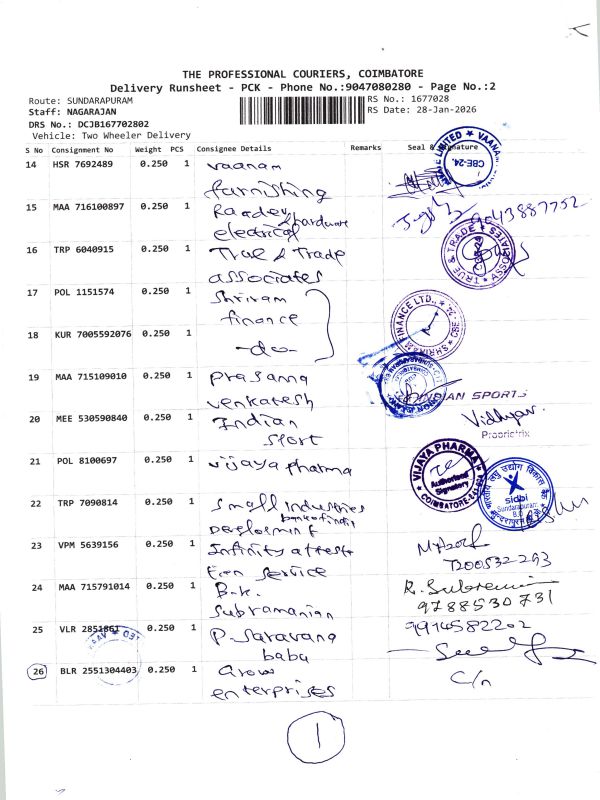 THE PROFESSIONAL COURIERS, COIMBATORE
Delivery Runsheet - PCK - Phone No.:9047080280 - Page No.:2
Route: SUNDARAPURAM
RS No.: 1677028
Staff: NAGARAJAN
RS Date: 28-Jan-2026
DRS No.: DCJB167702802
Vehicle: Two Wheeler Delivery
S No Consignment No Weight PCS Consignee Details Remarks Seal & Signature
14 HSR 7692489 0.250 1 vaanam
furnishing
CBE-24.
15 MAA 716100897 0.250 1 hardware
electrical
9043887752
16 TRP 6040915 0.250 1 True & Trade
associates
TRUE & TRADE ASSOCIATES
17 POL 1151574 0.250 1 Shriram
finance
18 KUR 7005592076 0.250 1 -do-
FINANCE LTD.,
19 MAA 715109010 0.250 1 prasanna
venkatesh
20 MEE 530590840 0.250 1 Indian
sport
INDIAN SPORTS
Vidhya
Proprietrix
21 POL 8100697 0.250 1 vijaya pharma
VIJAYA PHARMA
Authorised
Signatory
22 TRP 7090814 0.250 1 Small industries
bank of india
sidbi
Sundarapuram
B.O
23 VPM 5639156 0.250 1 Infinity attest
tion service
24 MAA 715791014 0.250 1 B.K.
subramanian
9788530731
25 VLR 2851861 0.250 1 P. Saravana
babu
9914582202
26 BLR 2551304403 0.250 1 Grow
enterprises
C/n
1